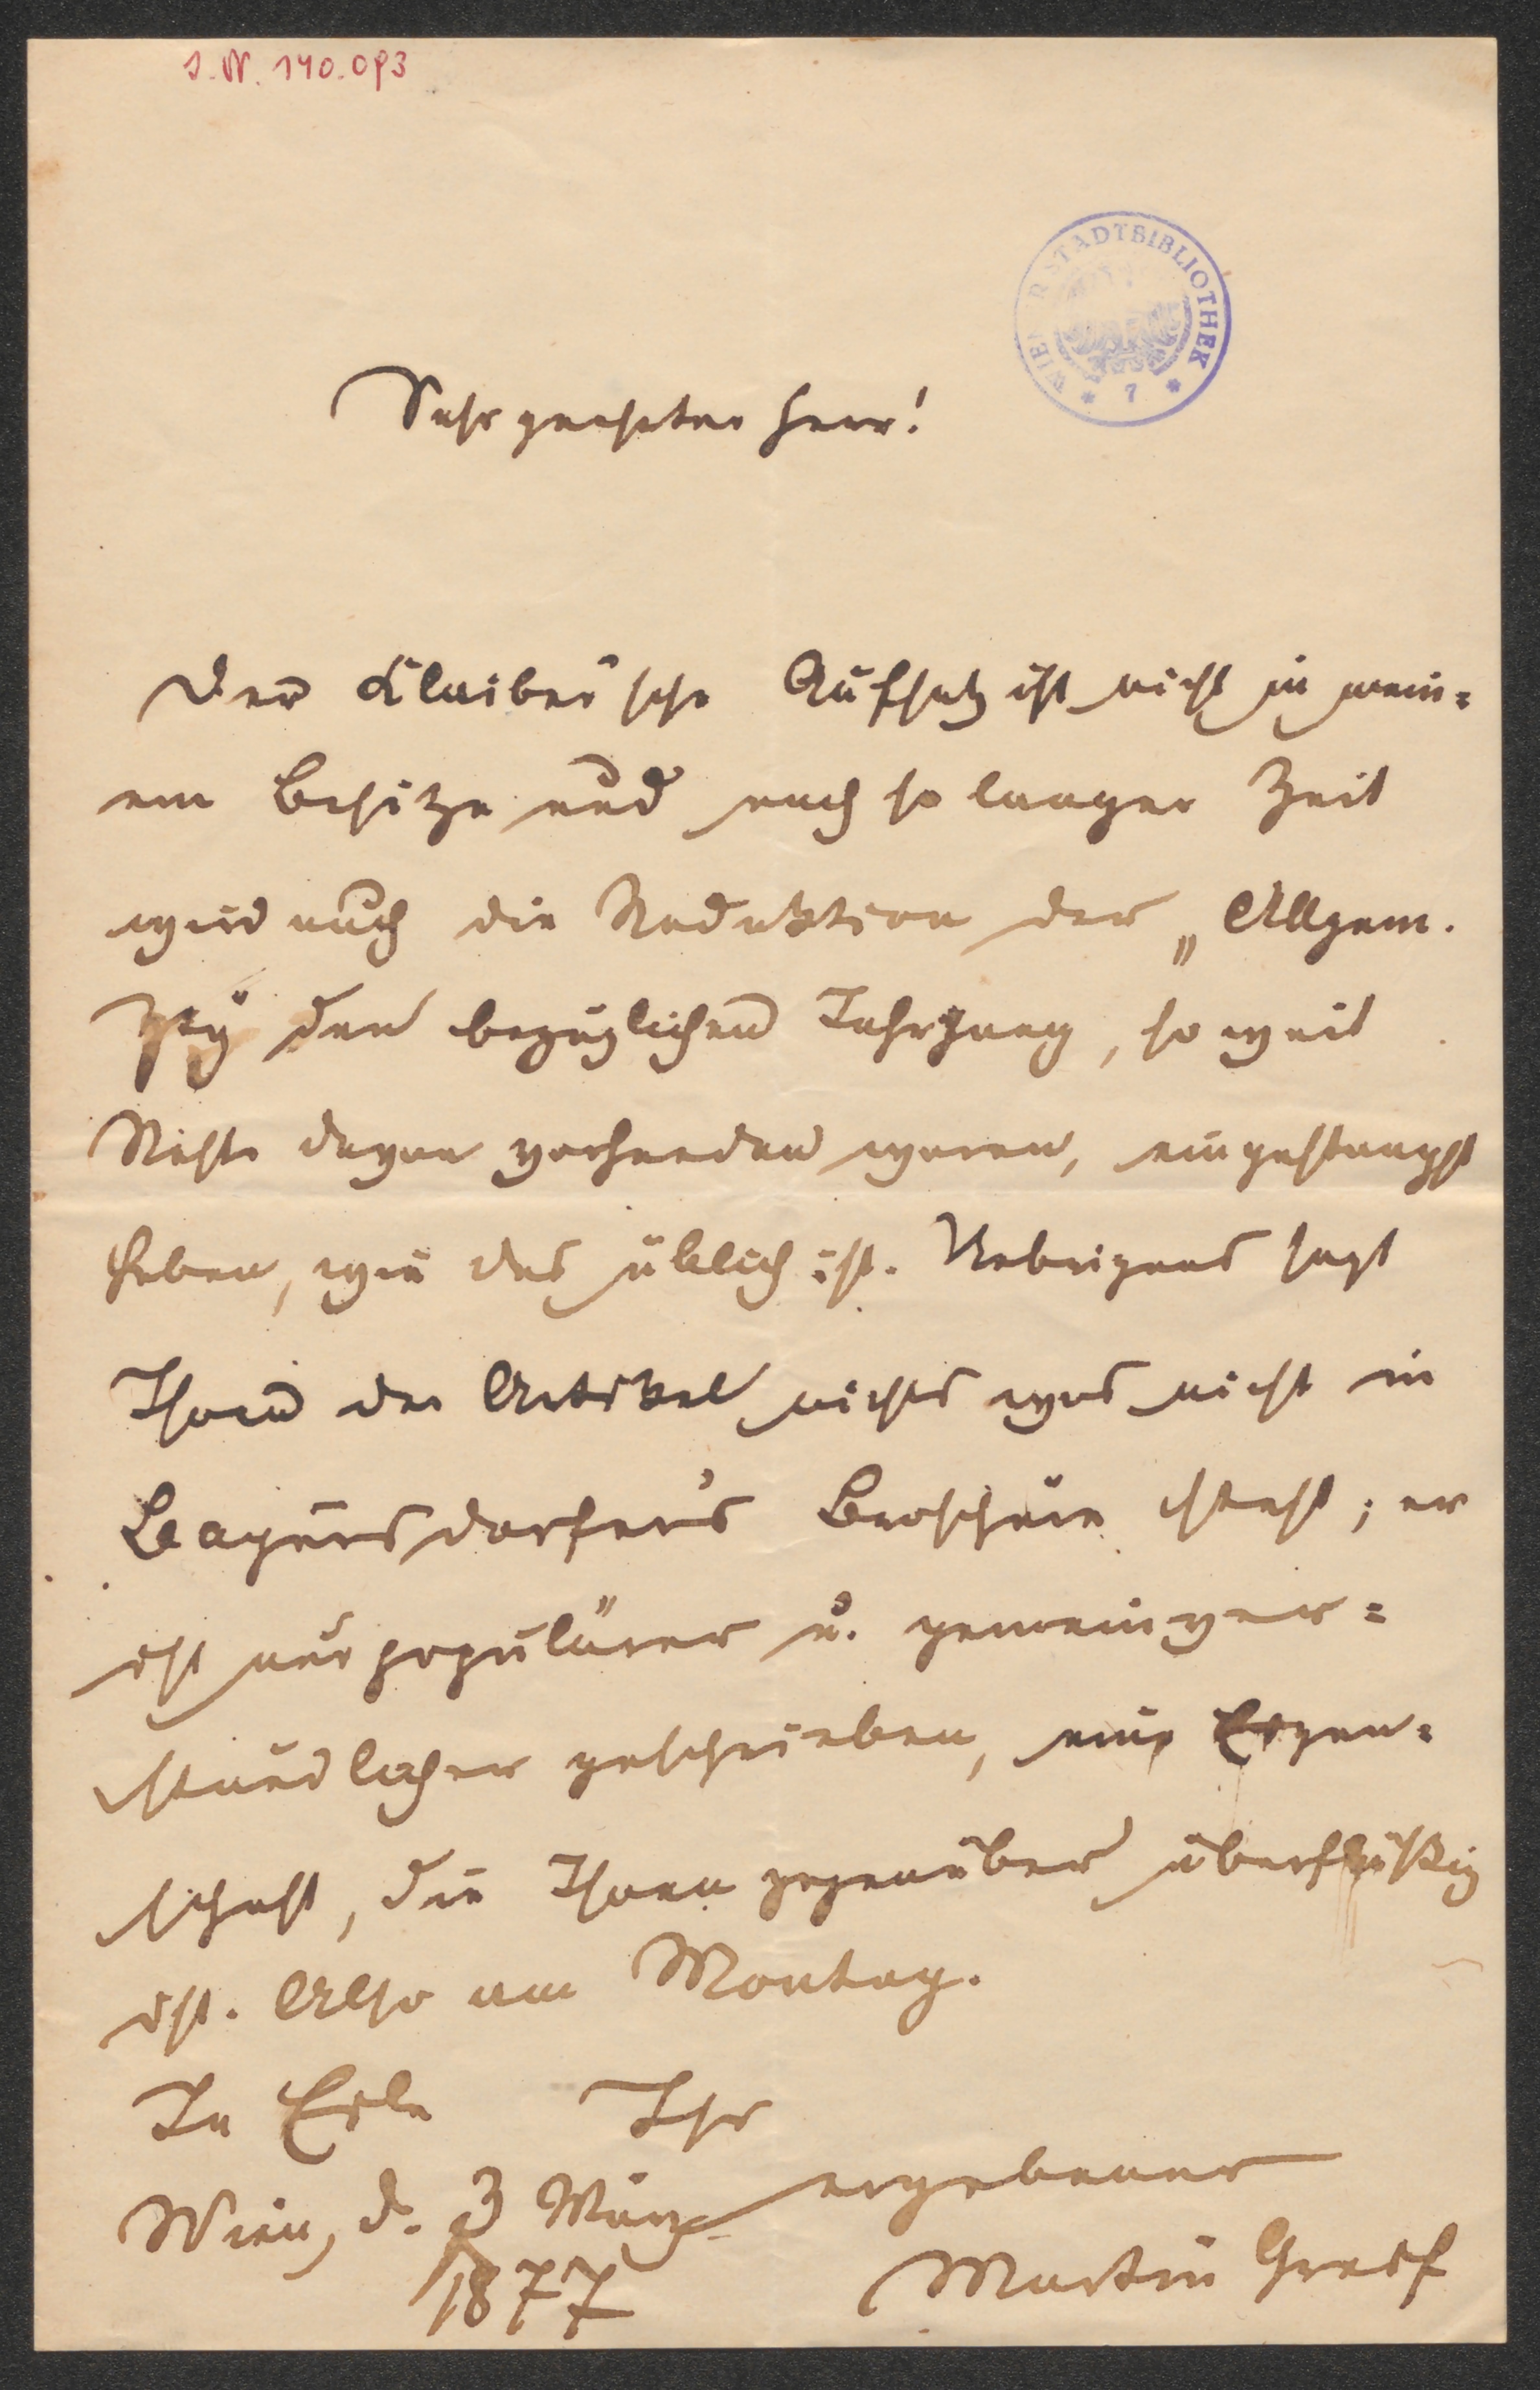 I. N. 140.093
WIENER STADTBIBLIOTHEK
* 7 *
Sehr geehrter Herr!
Der Klaiber'sche Aufsatz ist nicht in mein=
em Besitze und nach so langer Zeit
wird auch die Redaktion der „Allgem.
Ztg" den bezüglichen Jahrgang, so weit
Reste davon vorhanden waren, eingestampft
haben, wie das üblich ist. Uebrigens sagt
Ihnen der Artikel nichts was nicht in
Bayersdorfer's Broschüre steht; er
ist nur populärer u. gemeinver=
ständlicher geschrieben, eine Eigen=
schaft, die Ihnen gegenüber überflüßig
ist. Also am Montag.
In Eile Ihr
ergebener
Wien, d. 3 März
1877
Martin Greif